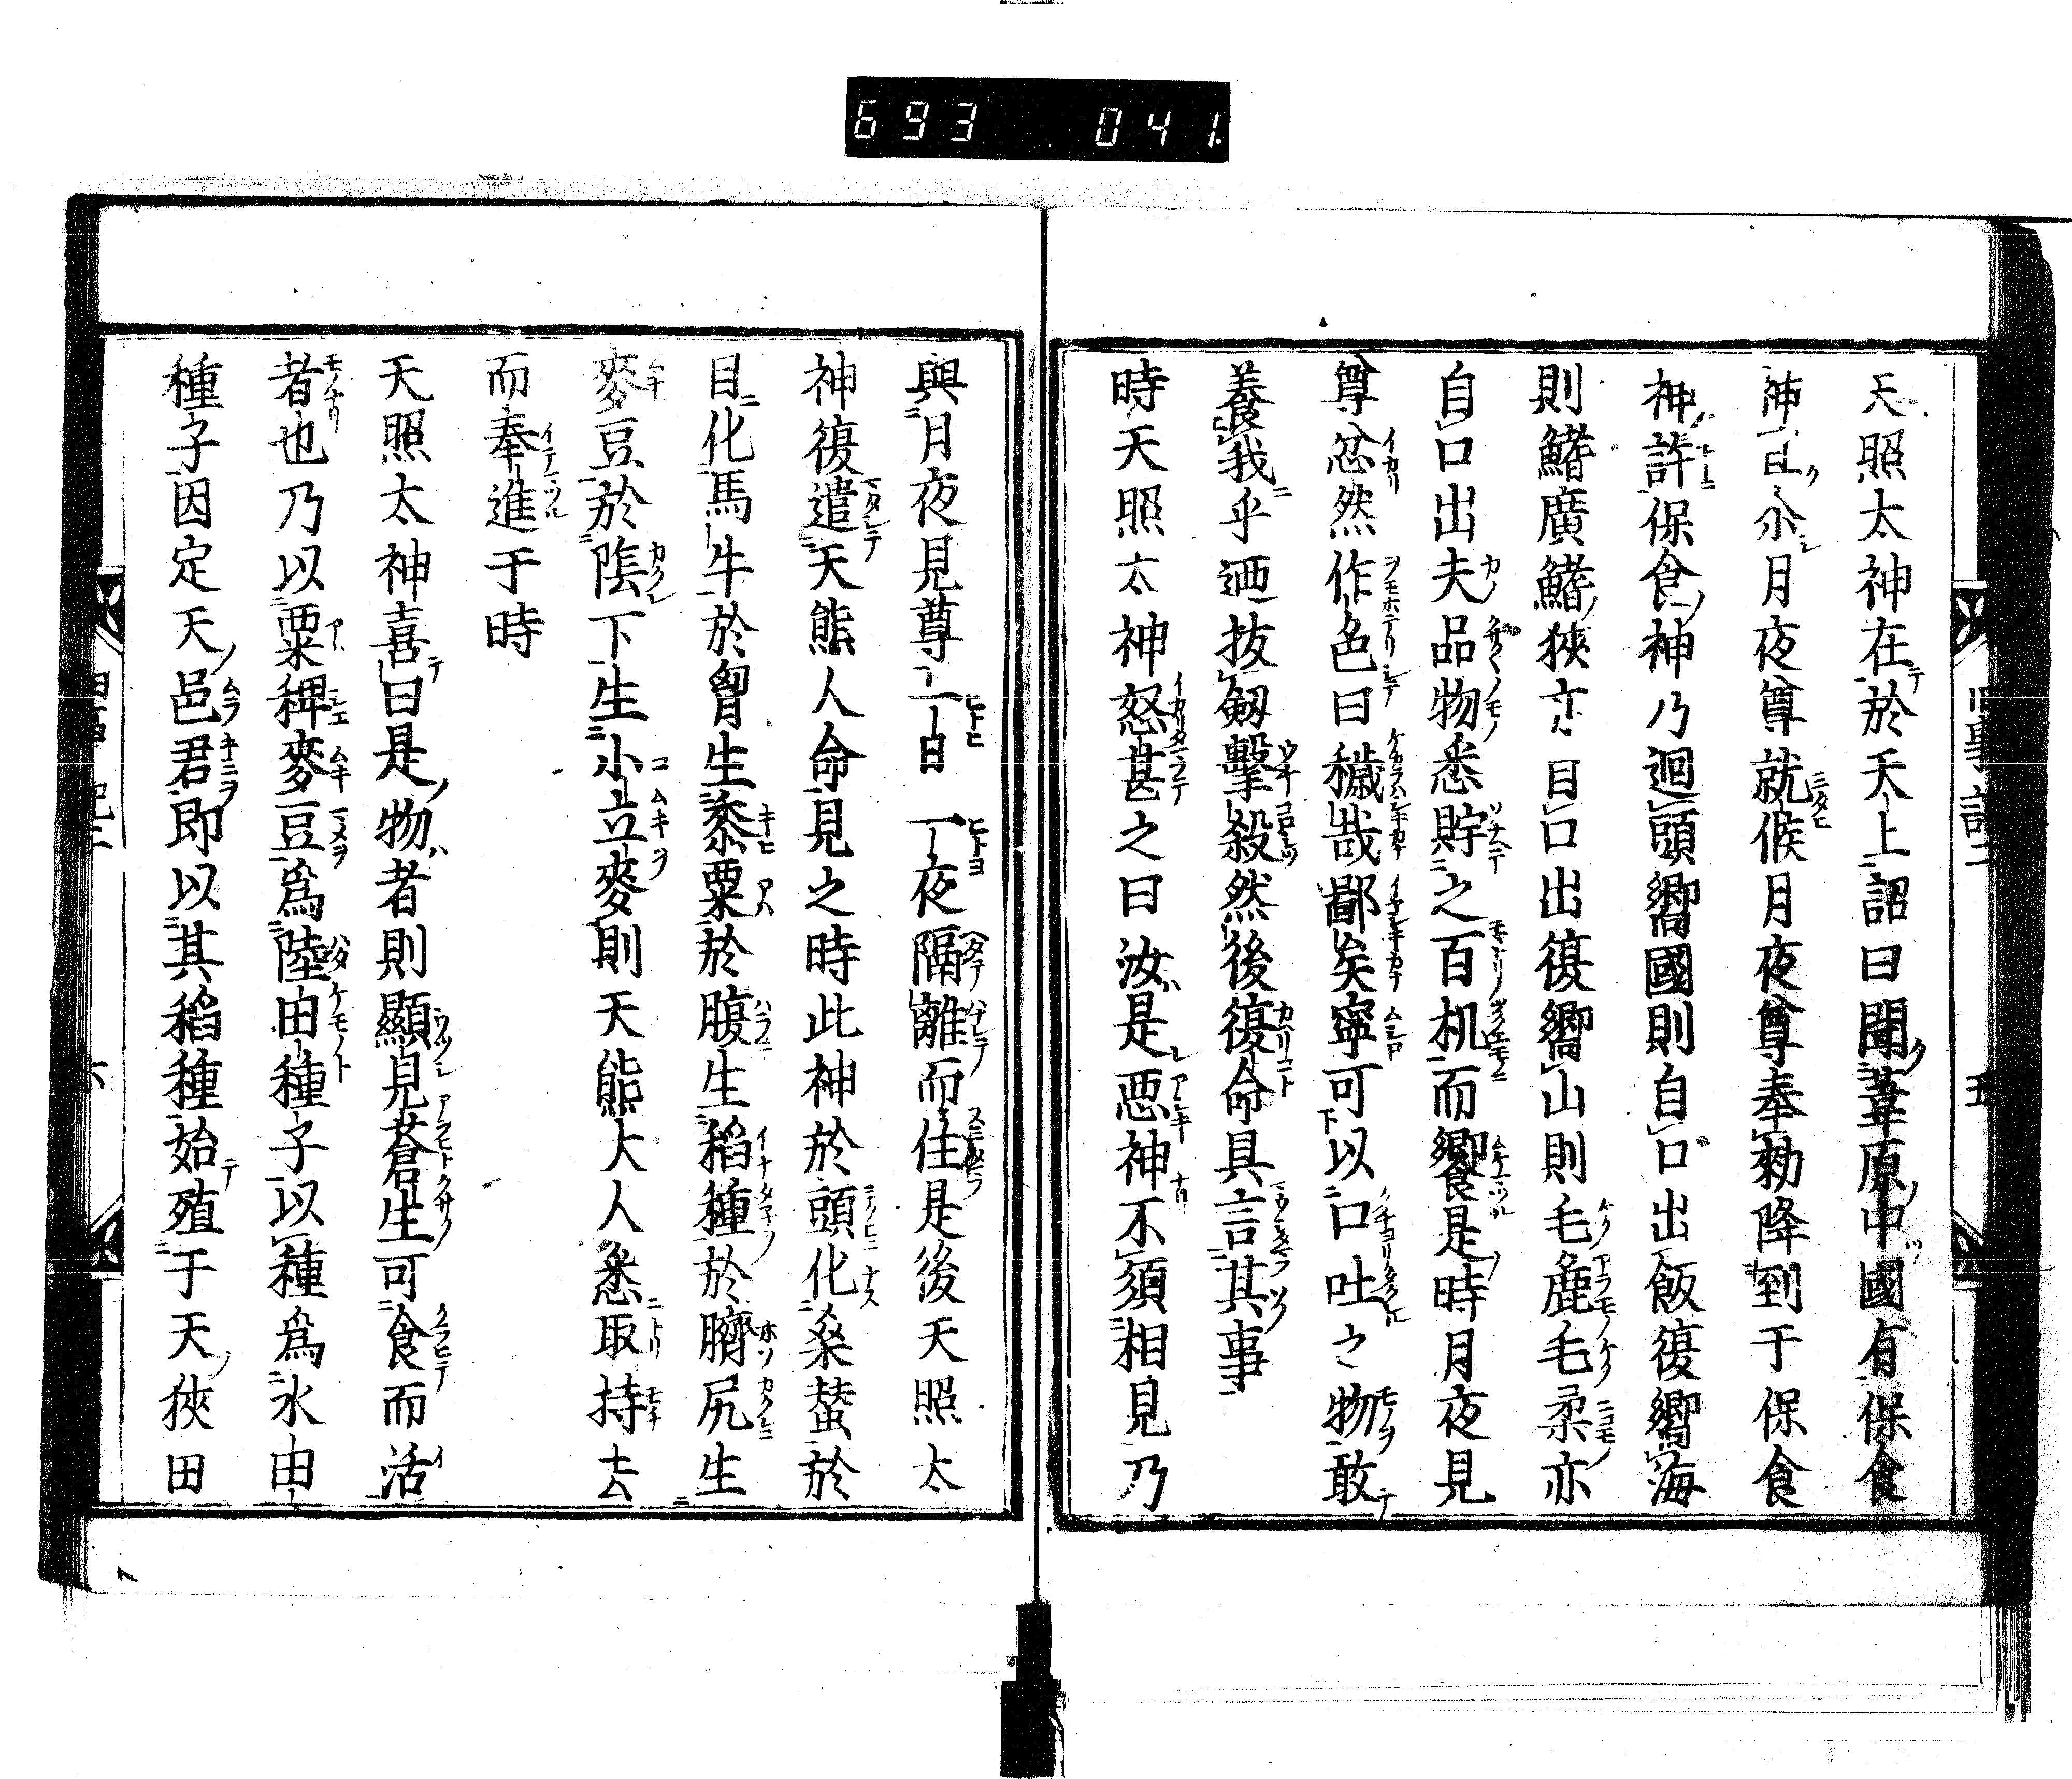 693 041.
天照太神在於天上詔曰聞葦原中國有保食
神曰尒月夜尊就候月夜尊奉勑降到于保食
神許保食神乃迴頭嚮國則自口出飯復嚮海
則鰭廣鰭狹亦自口出復嚮山則毛麁毛柔亦
自口出夫品物悉貯之百机而饗是時月夜見
尊忿然作色曰穢哉鄙矣寧可以口吐之物敢
養我乎迺拔劔擊殺然後復命具言其事
時天照太神怒甚之曰汝是惡神不須相見乃
與月夜見尊一日一夜隔離而住是後天照太
神復遣天熊人命見之時此神於頭化桑蚕於
目化馬牛於胷生黍粟於腹生稻種於臍尻生
麥豆於陰下生小立麥則天熊大人悉取持去
而奉進于時
天照太神喜曰是物者則顯見蒼生可食而活
者也乃以粟稗麥豆爲陸田種子以種爲水田
種子因定天邑君即以其稻種始殖于天狹田